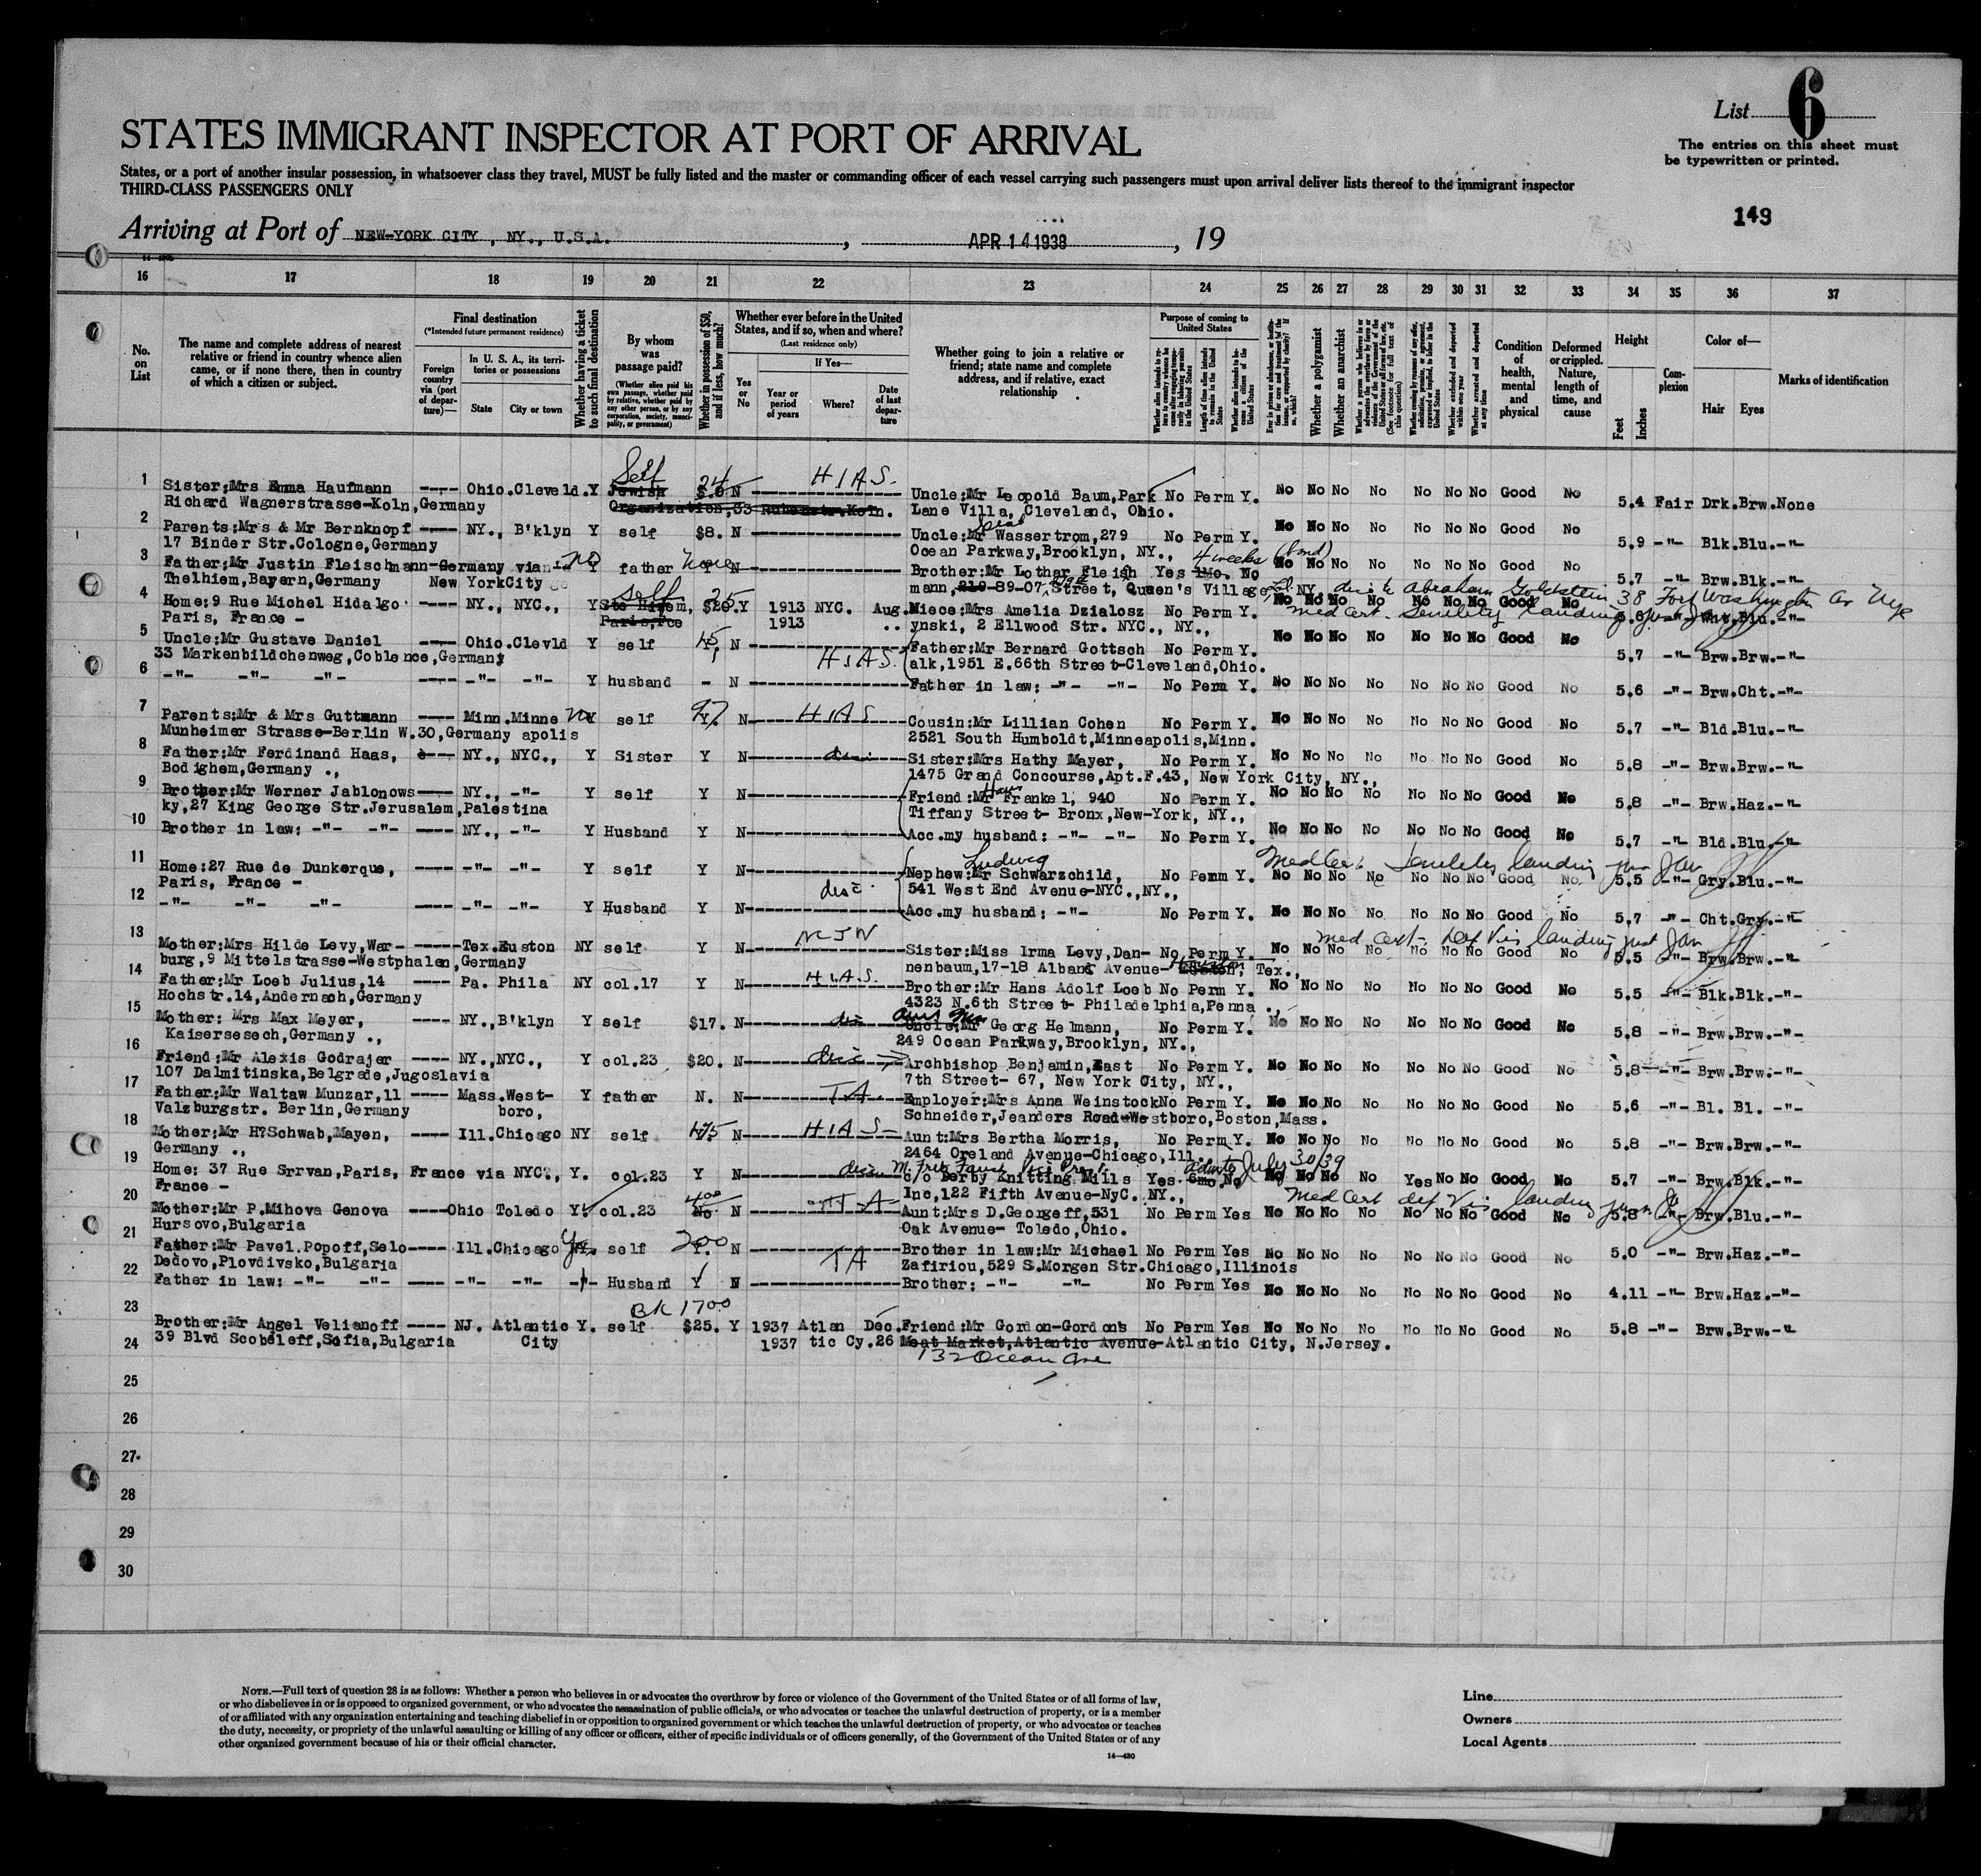 List 6
The entries on this sheet must
be typewritten or printed.
STATES IMMIGRANT INSPECTOR AT PORT OF ARRIVAL
States, or a port of another insular possession, in whatsoever class they travel, MUST be fully listed and the master or commanding officer of each vessel carrying such passengers must upon arrival deliver lists thereof to the immigrant inspector
THIRD-CLASS PASSENGERS ONLY
149
Arriving at Port of NEW-YORK CITY , NY., U.S.A. , APR 14 1938 , 19
16 17 18 19 20 21 22 23 24 25 26 27 28 29 30 31 32 33 34 35 36 37
No. on List
The name and complete address of nearest relative or friend in country whence alien came, or if none there, then in country of which a citizen or subject.
Final destination
(*Intended future permanent residence)
Foreign country via (port of departure)—
In U. S. A., its territories or possessions
State City or town
Whether having a ticket to such final destination
By whom was passage paid?
(Whether alien paid his own passage, whether paid by relative, whether paid by any other person, or by any corporation, society, municipality, or government)
Whether in possession of $50, and if less, how much?
Whether ever before in the United States, and if so, when and where?
(Last residence only)
Yes or No
If Yes—
Year or period of years
Where?
Date of last departure
Whether going to join a relative or friend; state name and complete address, and if relative, exact relationship
Purpose of coming to United States
Length of time alien intends to remain in the United States
Whether alien intends to become a citizen of the United States
Whether a polygamist
Whether an anarchist
(See footnote for full text of this question)
Whether excluded and deported within one year
Whether arrested and deported at any time
Condition of health, mental and physical
Deformed or crippled. Nature, length of time, and cause
Height
Feet Inches
Complexion
Color of—
Hair Eyes
Marks of identification
1 Sister:Mrs Emma Haufmann ---- Ohio.Cleveld.Y Self Jewish 24 N H I A S- Uncle:Mr Leopold Baum,Park No Perm Y. No No No No No No No Good No 5.4 Fair Drk.Brw.None
Richard Wagnerstrasse-Koln,Germany Organization,33 Rubenstr.Koln. Lane Villa, Cleveland, Ohio.
2 Parents:Mrs & Mr Bernknopf ---- NY., B'klyn Y self $8. N Uncle:Mr Wassertrom,279 No Perm Y. No No No No No No No Good No 5.9 -"- Blk.Blu.-"-
17 Binder Str.Cologne,Germany Ocean Parkway,Brooklyn, NY.,
3 Father:Mr Justin Fleischmann-Germany via no Y father none Y N Brother:Mr Lothar Fleish Yes 1Mo. No 4 weeks (bond) No No No No No No No Good No 5.7 -"- Brw.Blk.-"-
Thelhiem,Bayern,Germany New YorkCity mann, 219-89-07, Street, Queen's Village, NY. Abraham Goldstein 38 Fort Washington Av
4 Home:9 Rue Michel Hidalgo ---- NY., NYC., Y Self 25 $20.Y 1913 NYC. Aug. Niece:Mrs Amelia Dzialosz No Perm Y. No No No No No No No Good No
Paris, France - Paris,Fce 1913 .. ynski, 2 Ellwood Str. NYC., NY., med cert. Senility landing
5 Uncle:Mr Gustave Daniel ---- Ohio.Clevld Y self 15 N Father:Mr Bernard Gottsch No Perm Y. No No No No No No No Good No 5.7 -"- Brw.Brw.-"-
33 Markenbildchenweg,Coblence,Germany H I A S. alk,1951 E.66th Street-Cleveland,Ohio.
6 -"- -"- -"- ---- -"- -"- Y husband - N Father in law: -"- -"- No Perm Y. No No No No No No No Good No 5.6 -"- Brw.Cht.-"-
7 Parents:Mr & Mrs Guttmann ---- Minn.Minne no Y self 97 Y. N H I A S Cousin:Mr Lillian Cohen No Perm Y. No No No No No No No Good No 5.7 -"- Bld.Blu.-"-
Munheimer Strasse-Berlin W.30,Germany apolis 2521 South Humboldt,Minneapolis,Minn.
8 Father:Mr Ferdinand Haas, ---- NY., NYC., Y Sister Y N Sister:Mrs Hathy Mayer, No Perm Y. No No No No No No No Good No 5.8 -"- Brw.Brw.-"-
Bodighem,Germany ., 1475 Grand Concourse,Apt.F.43, New York City, NY.,
9 Brother:Mr Werner Jablonows---- NY., -"- Y self Y N Friend:Mr Hans Frankel, 940 No Perm Y. No No No No No No No Good No 5.8 -"- Brw.Haz.-"-
ky,27 King George Str.Jerusalem,Palestina Tiffany Street- Bronx,New-York, NY.,
10 Brother in law: -"- -"- ---- NY., -"- Y Husband Y N Acc.my husband: -"- -"- No Perm Y. No No No No No No No Good No 5.7 -"- Bld.Blu.-"-
11 Home:27 Rue de Dunkerque, ---- -"- -"- Y self Y N Nephew:Mr Ludwig Schwarzchild, No Perm Y. No No No No No No No Good No 5.5 -"- Gry.Blu.-"-
Paris, France - 541 West End Avenue-NYC.,NY., Med Cert. Senility landing
12 -"- -"- -"- ---- -"- -"- Y Husband Y N Acc.my husband: -"- No Perm Y. No No No No No No No Good No 5.7 -"- Cht.Gry.-"-
13 Mother:Mrs Hilde Levy,War- -----Tex.Euston NY self Y N N C J W Sister:Miss Irma Levy,Dan- No Perm Y. No No No No No No No Good No 5.5 -"- Brw.Brw.-"-
burg,9 Mittelstrasse-Westphalen,Germany nenbaum,17-18 Albans Avenue- Houston, Tex., med cert. Def Vis landing
14 Father:Mr Loeb Julius,14 ---- Pa. Phila NY col.17 Y N H.I.A.S. Brother:Mr Hans Adolf Loeb No Perm Y. No No No No No No No Good No 5.5 -"- Blk.Blk.-"-
Hochstr.14,Andernach,Germany 4323 N.6th Street- Philadelphia,Penna .,
15 Mother: Mrs Max Meyer, ---- NY.,B'klyn Y self $17. N Aunt Mrs Uncle:Mr Georg Helmann, No Perm Y. No No No No No No No Good No 5.8 -"- Brw.Brw.-"-
Kaisersesech,Germany ., 249 Ocean Parkway,Brooklyn, NY.,
16 Friend:Mr Alexis Godrajer ---- NY.,NYC., Y col.23 $20. N Archbishop Benjamin,East No Perm Y. No No No No No No No Good No 5.8 -"- Brw.Brw.-"-
107 Dalmitinska,Belgrade,Jugoslavia 7th Street- 67, New York City, NY.,
17 Father:Mr Waltaw Munzar,11 ---- Mass.West- Y father N. N T A Employer:Mrs Anna Weinstock No Perm Y. No No No No No No No Good No 5.6 -"- Bl. Bl. -"-
Valzburgstr. Berlin,Germany boro, Schneider,Jeanders Road-Westboro,Boston,Mass.
18 Mother:Mr H?Schwab,Mayen, ---- Ill.Chicago NY self N H I A S- Aunt:Mrs Bertha Morris, No Perm Y. No No No No No No No Good No 5.8 -"- Brw.Brw.-"-
Germany ., 2464 Oreland Avenue-Chicago,Ill.
19 Home: 37 Rue Srrvan,Paris, France via NYC., Y. col.23 Y N c/o Derby Knitting Mills Yes 6mo No July 30/39 No No No No Yes No No Good No 5.7 -"- Brw.Blk.-"-
France - Inc,122 Fifth Avenue-NyC. NY., Med Cert def Vis landing
20 Mother:Mr P.Mihova Genova ----Ohio Toledo Y. col.23 400 No. N Aunt:Mrs D.Georgeff,531 No Perm Yes No No No No No No No Good No 5.8 -"- Brw.Blu.-"-
Hursovo,Bulgaria Oak Avenue- Toledo,Ohio.
21 Father:Mr Pavel.Popoff,Selo---- Ill.Chicago Yes self 200 Y. N Brother in law:Mr Michael No Perm Yes No No No No No No No Good No 5.0 -"- Brw.Haz.-"-
Dedovo,Plovdivsko,Bulgaria T A Zafiriou,529 S.Morgen Str.Chicago,Illinois
22 Father in law: -"- -"- ---- -"- -"- -"- Husband Y N Brother: -"- -"- No Perm Yes No No No No No No No Good No 4.11 -"- Brw.Haz.-"-
BK 1700
23 Brother:Mr Angel Velianoff ---- NJ. Atlantic Y. self $25. Y 1937 Atlan Dec. Friend:Mr Gordon-Gordon's No Perm Yes No No No No No No No Good No 5.8 -"- Brw.Brw.-"-
24 39 Blvd Scobeleff,Sofia,Bulgaria City 1937 tic Cy.26 Meat Market,Atlantic Avenue-Atlantic City, N.Jersey.
132 Ocean Ave
25
26
27
28
29
30
NOTE.—Full text of question 28 is as follows: Whether a person who believes in or advocates the overthrow by force or violence of the Government of the United States or of all forms of law,
or who disbelieves in or is opposed to organized government, or who advocates the assassination of public officials, or who advocates or teaches the unlawful destruction of property, or is a member
of or affiliated with any organization entertaining and teaching disbelief in or opposition to organized government or which teaches the unlawful destruction of property, or who advocates or teaches
the duty, necessity, or propriety of the unlawful assaulting or killing of any officer or officers, either of specific individuals or of officers generally, of the Government of the United States or of any
other organized government because of his or their official character.
14—430
Line
Owners
Local Agents